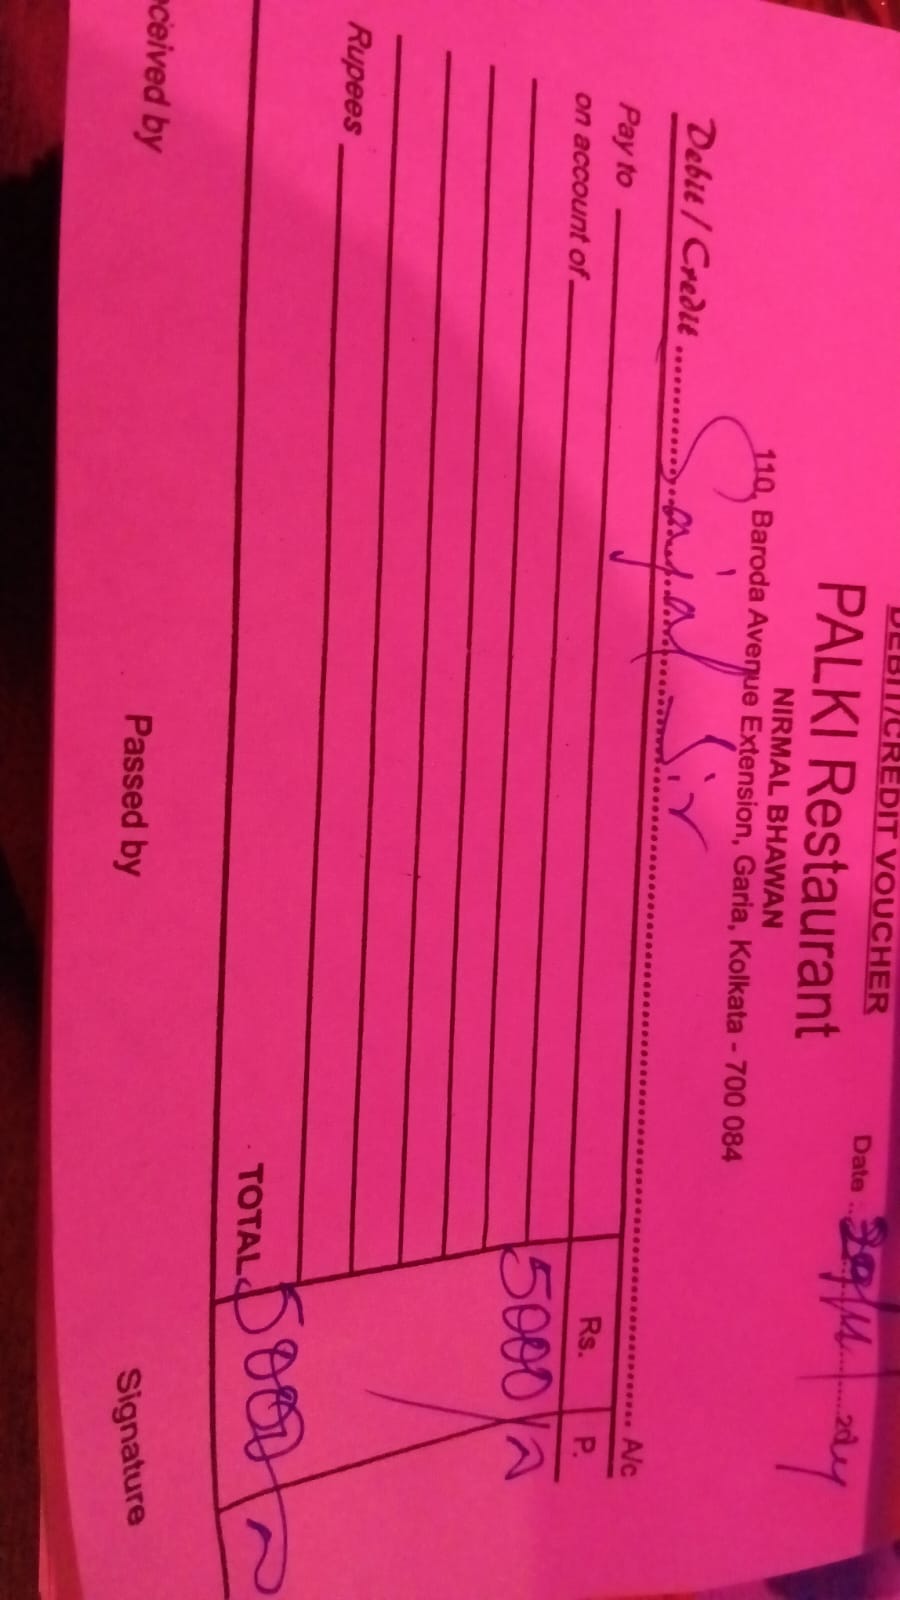 DEBIT/CREDIT VOUCHER
PALKI Restaurant
NIRMAL BHAWAN
110, Baroda Avenue Extension, Garia, Kolkata - 700 084
Date
Debit / Credit Sir A/c
Pay to Rs. P.
on account of
5000/-
Rupees
TOTAL 5000/-
ceived by Passed by Signature